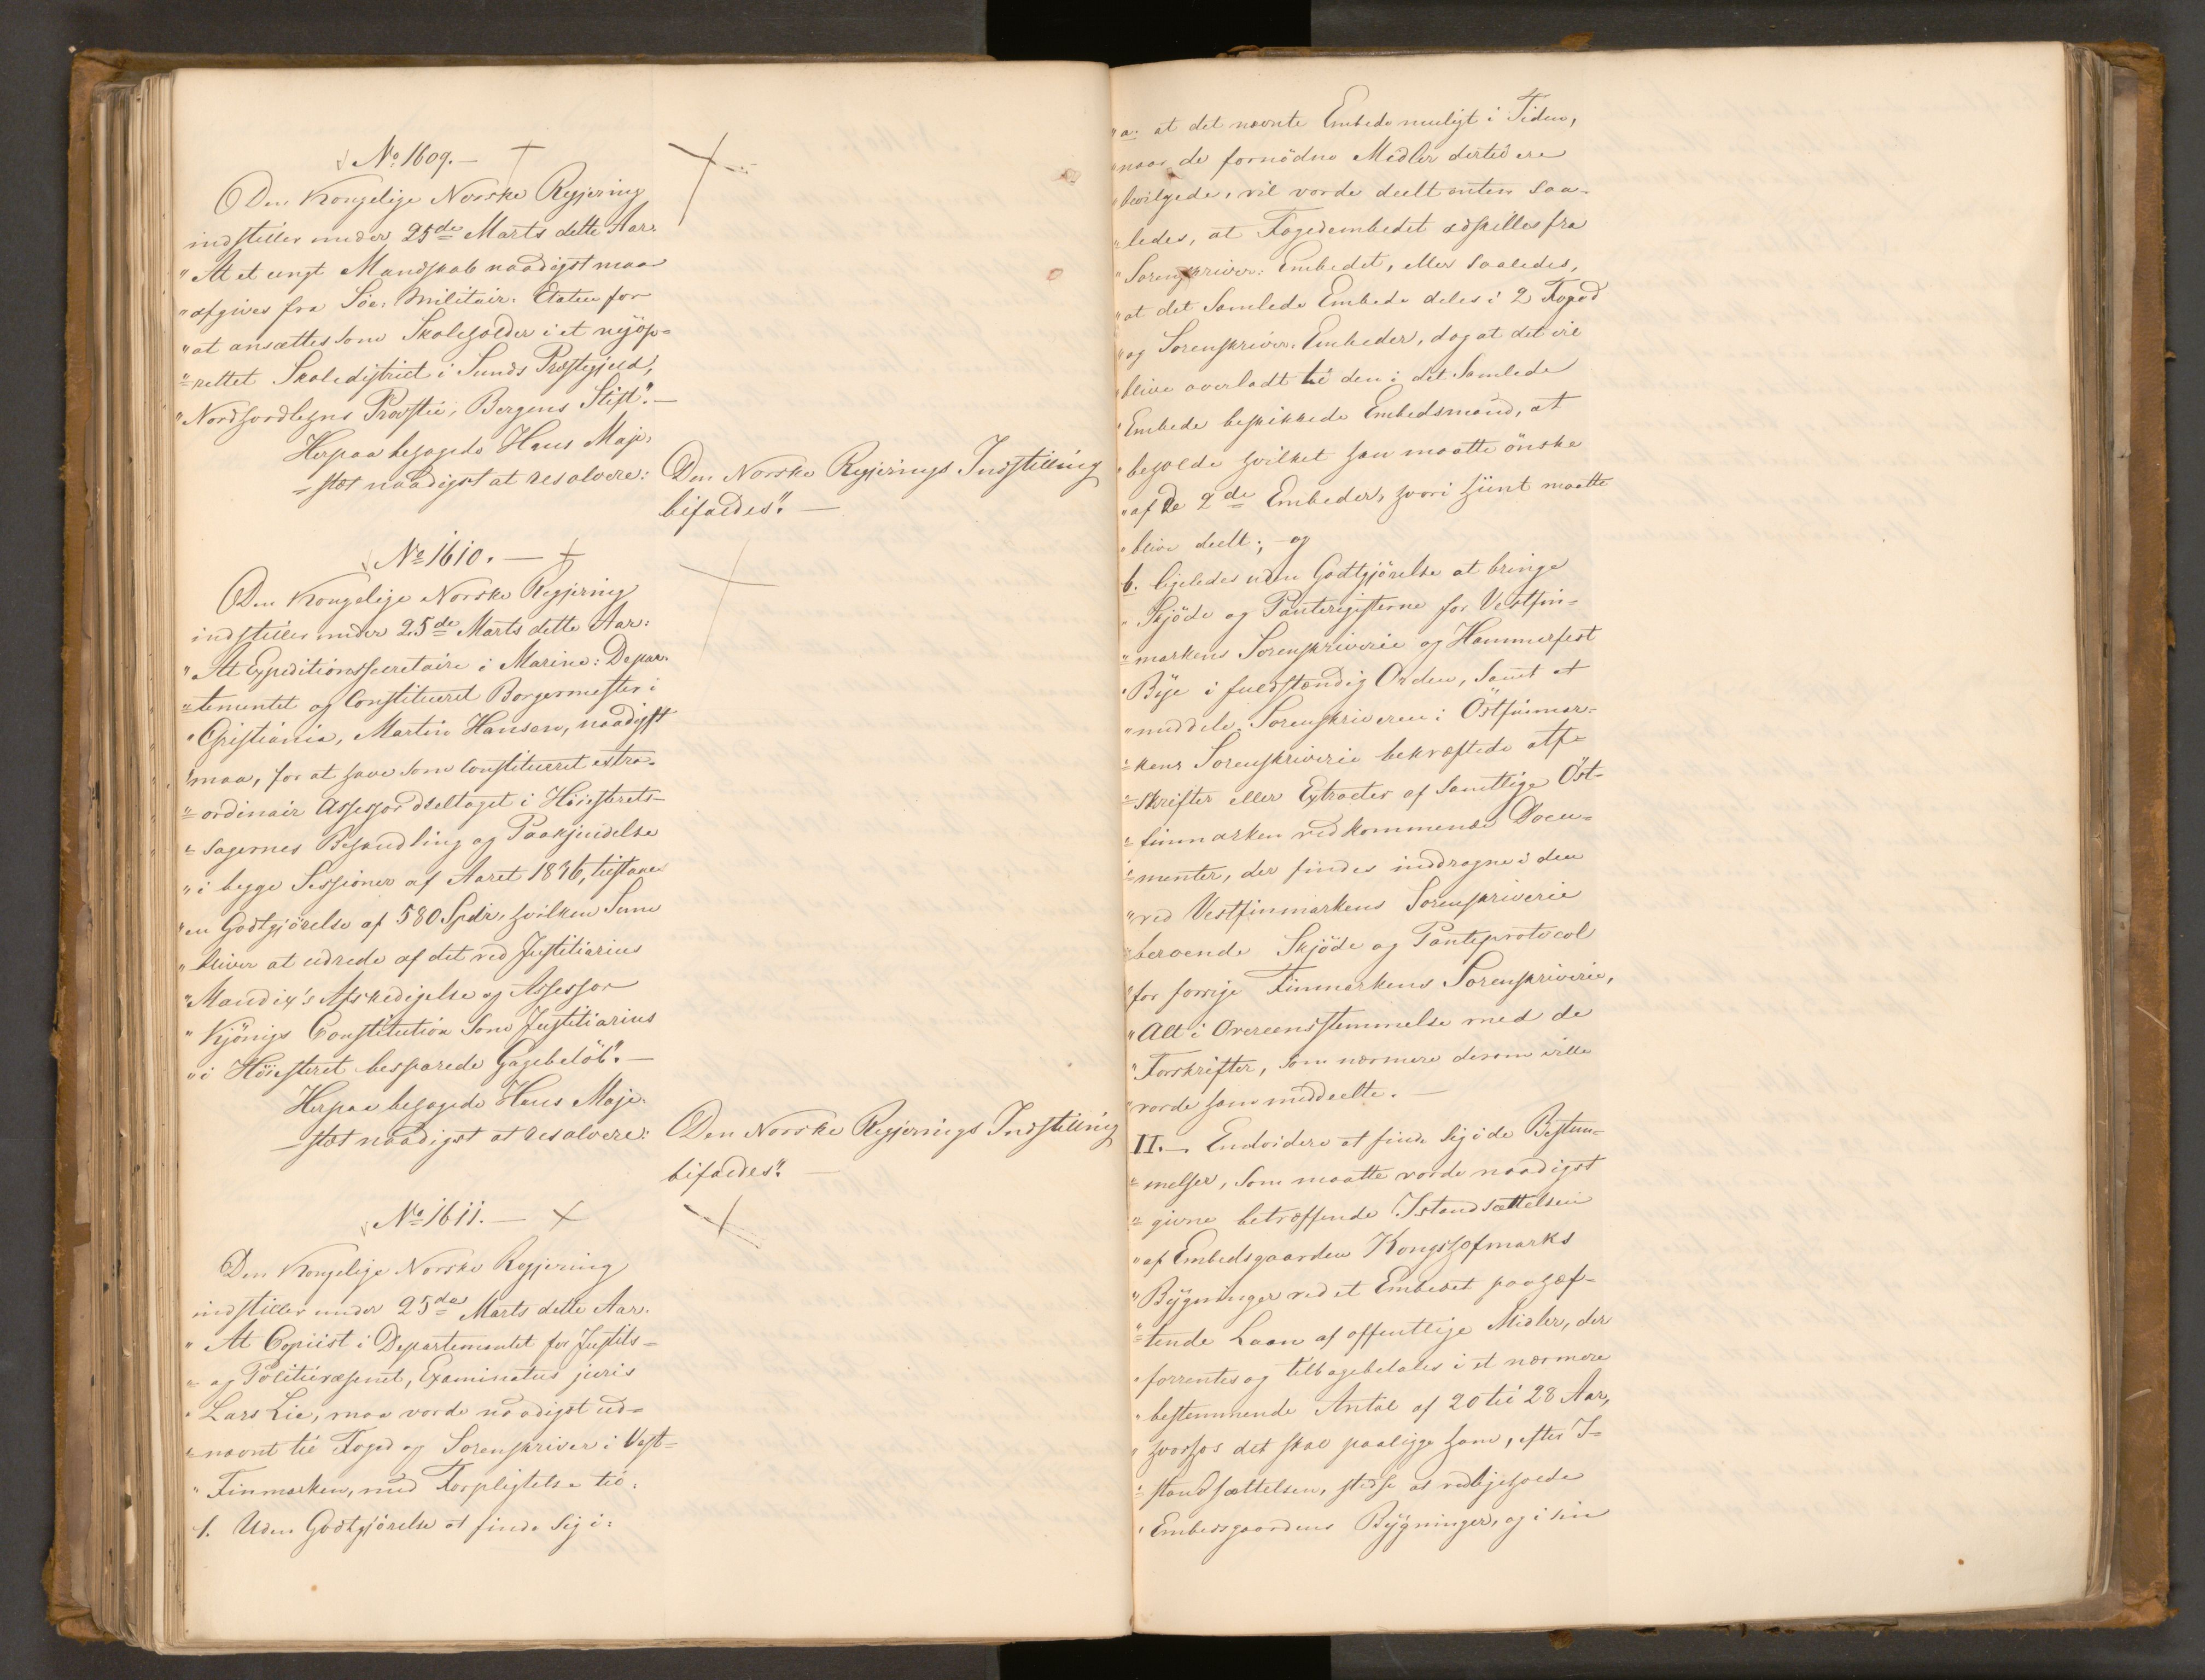 No. 1609.—
Den Kongelige Norske Regjering
indstiller under 25de Marts dette Aar:
"At et ungt Mandskab naadigst maa
"afgives fra Søe-Militair-Etaten for
"at ansættes som Skoleholder i et nyöp-
"=rettet Skoledistrict i Sunds Præstegjeld,
"Nordhordlehns Provstie, Bergens Stift".—
Herpaa behagede Hans Maje-
-stæt naadigst at resolvere:
Den Norske Regjerings Indstilling
bifaldes".—
No. 1610.—
Den Kongelige Norske Regjering
indstiller under 25de Marts dette Aar:
"At Expeditionssecretaire i Marine-Depar-
"=tementet og Constitueret Borgermester i
"Christiania, Martin Hansen, naadigst
"maa, for at have som Constitueret extra-
"=ordinair Assessor deeltaget i Høiesterets-
"=sagernes Behandling og Paakjendelse
"i begge Sessioner af Aaret 1836, tilstaaes
"en Godtgjörelse af 580 Spdr, hvilken Sum
"bliver at udrede af det ved Justitiarius
"Mandix's Afskedigelse og Assessor
"Kjönigs Constitution som Justitiarius
"i Höiesteret besparede Gagebelöb".—
Herpaa behagede Hans Maje-
-stæt naadigst at resolvere:
Den Norske Regjerings Indstilling
bifaldes".—
No. 1611.—
Den Kongelige Norske Regjering
indstiller under 25de Marts dette Aar.
"At Copiist i Departementet for Justits-
"= og Politievæsenet, Examinatus juris
"Lars Lie, maa vorde naadigst ud-
"=nævnt til Foged og Sorenskriver i Vest-
"Finmarken, med Forpligtelse til:
1. Uden Godtgjörelse at finde sig i:
"a. at det nævnte Embede muligt i Tiden,
"naar de fornödne Midler dertil ere
"bevilgede, vil vorde deelt enten saa-
"ledes, at Fogedembedet adskilles fra
"Sorenskriver-Embedet, eller saaledes,
"at det samlede Embede deles i 2 Foged
"og Sorenskriver-Embeder, dog at det vil
"blive overladt til den i det samlede
"Embede beskikkede Embedsmand, at
"beholde hvilket han maatte önske
"af de 2de Embeder, hvori hiint maatte
"blive deelt; og
b. ligeledes uden Godtgjörelse at bringe
"Skjöde og Panteregisterne for Vestfin-
"=markens Sorenskriverie og Hammerfest
"Bye i fuldstændig Orden, samt at
"meddele Sorenskriveren i Östfinmar-
"=kens Sorenskriverie bekræftede Af-
"=skrifter eller Extracter af samtlige Öst-
"=finmarken vedkommende Docu-
"=menter, der findes inddragne i den
"ved Vestfinmarkens Sorenskriverie
"beroende Skjöde og Panteprotocol
"for forrige Finmarkens Sorenskriverie,
"Alt i Overeensstemmelse med de
"Forskrifter, som nærmere derom ville
"vorde ham meddeelte.—
II.— Endvidere at finde sig i de Bestem-
"=melser, som maatte vorde naadigst
"givne betræffende Istandsættelsen
"af Embedsgaarden Kongshofmarks
"Bygninger ved et Embedet paahæf-
"=tende Laan af offentlige Midler, der
"forrentes og tilbagebetales i et nærmere
"bestemmende Antal af 20 til 28 Aar,
"hvorhos det skal paaligge ham, efter I-
"=standsættelsen, stedse at vedligeholde
"Embedsgaardens Bygninger, og i sin